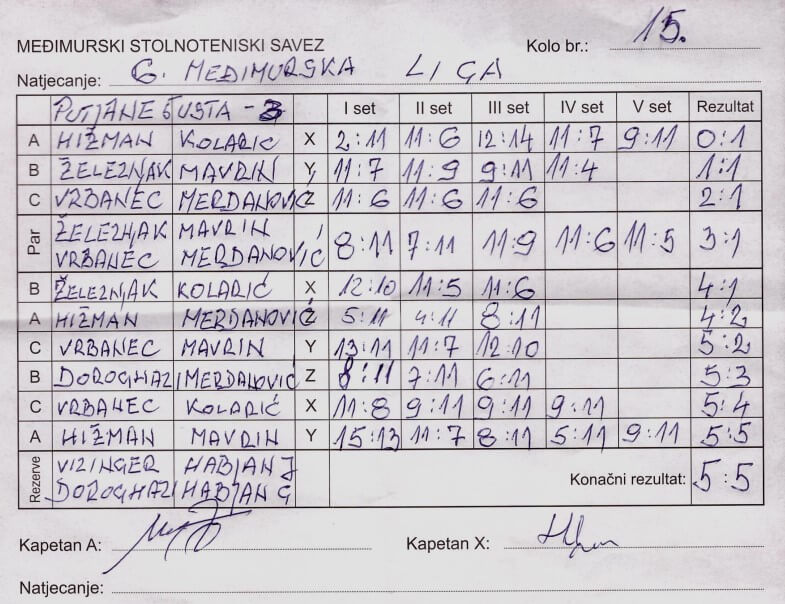 MEĐIMURSKI STOLNOTENISKI SAVEZ
Kolo br.: 15.
Natjecanje: G. MEĐIMURSKA LIGA
PUTJANE ŠUSTA - 3 I set II set III set IV set V set Rezultat
A HIŽMAN KOLARIĆ X 2:11 11:6 12:14 11:7 9:11 0:1
B ŽELEZNJAK MAVRIN Y 11:7 11:9 9:11 11:4 1:1
C VRBANEC MERDANOVIĆ Z 11:6 11:6 11:6 2:1
Par ŽELEZNJAK MAVRIN
VRBANEC MERDANOVIĆ 8:11 7:11 11:9 11:6 11:5 3:1
B ŽELEZNJAK KOLARIĆ X 12:10 11:5 11:6 4:1
A HIŽMAN MERDANOVIĆ Z 5:11 4:11 8:11 4:2
C VRBANEC MAVRIN Y 13:11 11:7 12:10 5:2
B DOROGHAZI MERDANOVIĆ Z 8:11 7:11 6:11 5:3
C VRBANEC KOLARIĆ X 11:8 9:11 9:11 9:11 5:4
A HIŽMAN MAVRIN Y 15:13 11:7 8:11 5:11 9:11 5:5
Rezerve VIZINGER HABJAN J
DOROGHAZI HABJAN G
Konačni rezultat: 5:5
Kapetan A: Kapetan X:
Natjecanje: